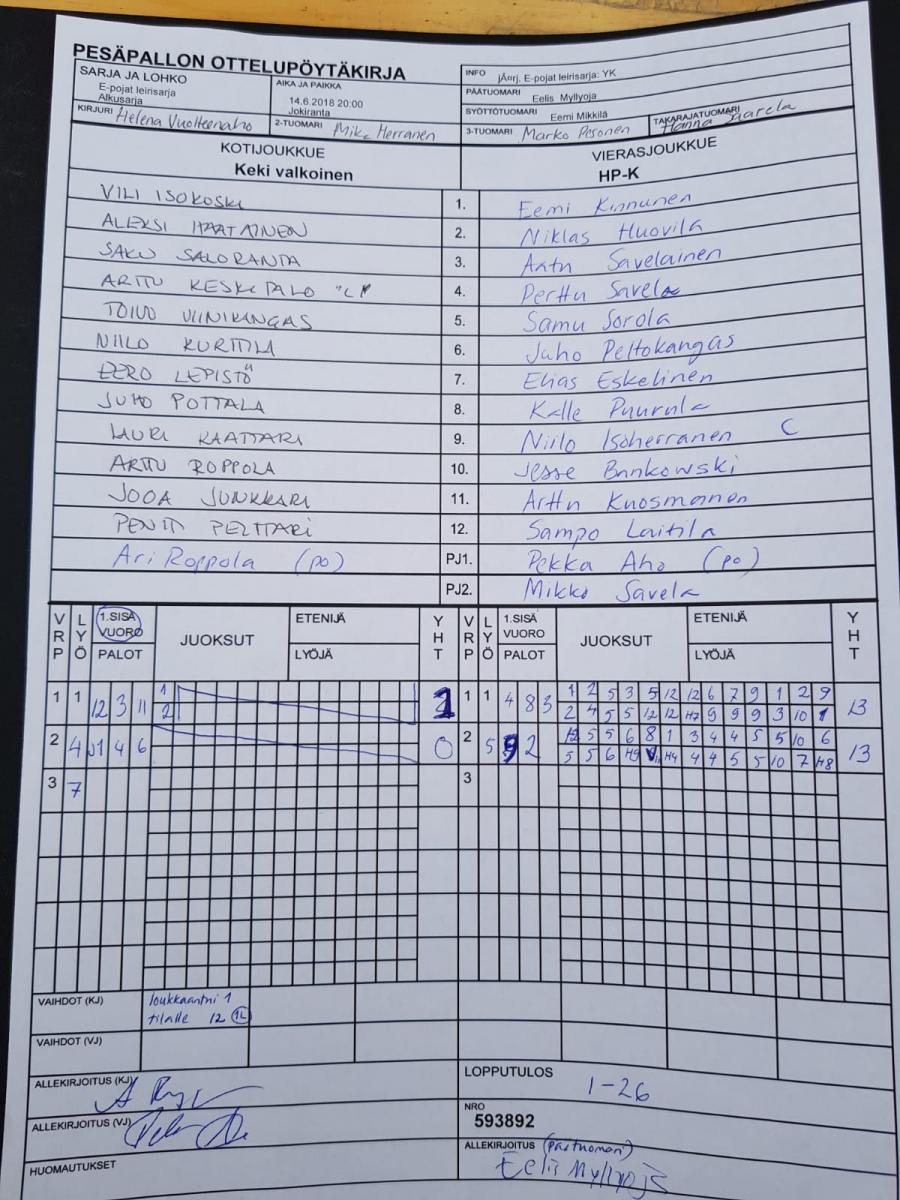 PESÄPALLON OTTELUPÖYTÄKIRJA
SARJA JA LOHKO
E-pojat leirisarja
Alkusarja
AIKA JA PAIKKA
14.6.2018 20:00
Jokiranta
INFO jÄ¤rj. E-pojat leirisarja: YK
PÄÄTUOMARI Eelis Myllyoja
SYÖTTÖTUOMARI Eemi Mikkilä
KIRJURI Helena Vuolteenaho
2-TUOMARI Mika Herranen
3-TUOMARI Marko Pesonen
TAKARAJATUOMARI Hanna Saarela
KOTIJOUKKUE
Keki valkoinen
VIERASJOUKKUE
HP-K
VILI ISOKOSKI 1. Eemi Kinnunen
ALEKSI HAATAINEN 2. Niklas Huovila
SAKU SALORANTA 3. Artn Savelainen
ARTTU KESKITALO "C" 4. Perttu Savela
TOIVO VIINIKANGAS 5. Samu Sorola
NIILO KURTTILA 6. Juho Peltokangas
EERO LEPISTÖ 7. Elias Eskelinen
JUHO POTTALA 8. Kalle Puurula
LAURI KAATTARI 9. Niilo Isoherranen C
ARTTU ROPPOLA 10. Jesse Bankowski
JOOA JUNKKARI 11. Arttu Kuosmanen
PENTTI PELTTARI 12. Sampo Laitila
Ari Roppola (po) PJ1. Pekka Aho (po)
PJ2. Mikko Savela
VRP LYÖ 1.SISÄ VUORO PALOT JUOKSUT ETENIJÄ LYÖJÄ YHT VRP LYÖ 1.SISÄ VUORO PALOT JUOKSUT ETENIJÄ LYÖJÄ YHT
1 1 12 3 11 1 1 1 1 4 8 3 1 2 5 3 5 12 12 6 7 9 1 2 9 13
2 2 4 5 5 12 12 H7 9 9 9 3 10 1
2 4 1 4 6 0 2 5 9 2 12 5 5 6 8 1 3 4 4 5 5 10 6 13
5 5 6 H9 H4 4 4 5 5 10 7 H8
3 7 3
VAIHDOT (KJ) loukkaantni 1
tilalle 12 1L
VAIHDOT (VJ)
ALLEKIRJOITUS (KJ)
LOPPUTULOS 1-26
ALLEKIRJOITUS (VJ)
NRO
593892
HUOMAUTUKSET
ALLEKIRJOITUS (päätuomari)
Eelis Myllyoja